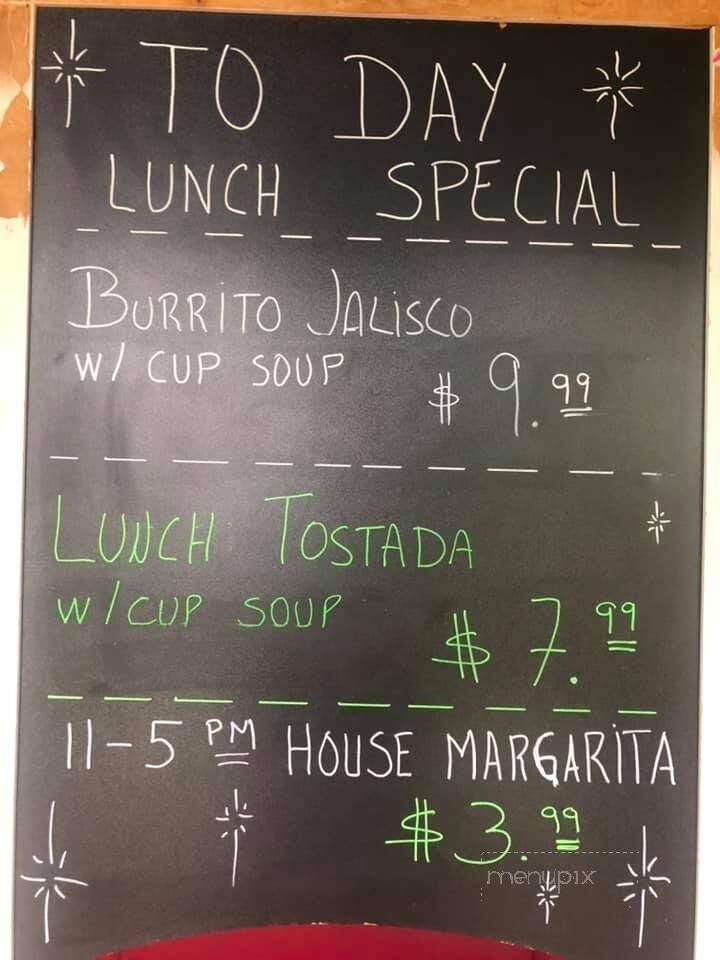 TO DAY
LUNCH SPECIAL
BURRITO JALISCO
W/ CUP SOUP
$ 9.99
LUNCH TOSTADA
W/CUP SOUP
$ 7.99
11-5 PM HOUSE MARGARITA
$ 3.99
menupix